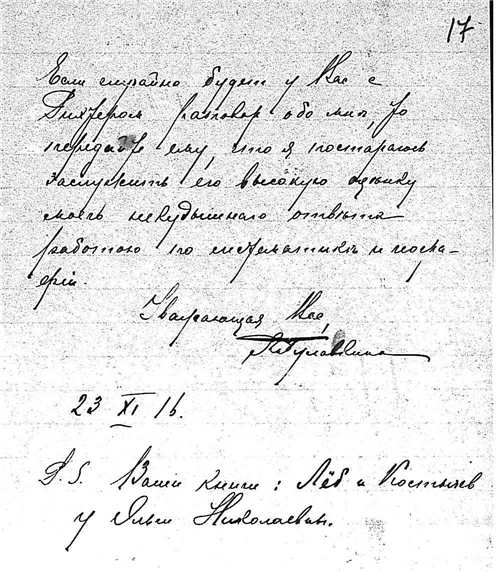 17
Если случайно будет у Вас с
разговор обо мнѣ, то
передайте ему, что я постараюсь
заслужить его высокую оцѣнку
моего никудышнаго отвѣта
работою по систематикѣ и
Уважающая Вас,
23 XI 16.
P.S. Ваши книги: Лёб и Костычев
у Ольги Николаевны.